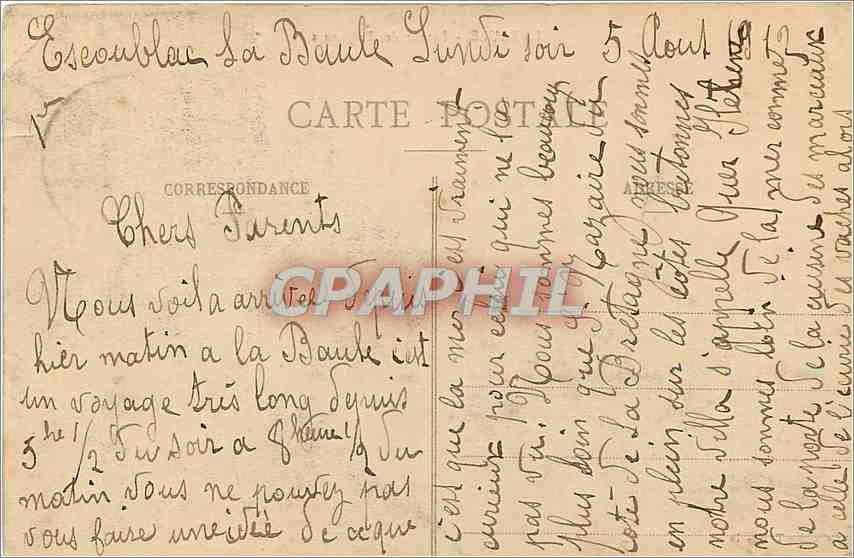 Escoublac La Baule Lundi soir 5 Aout 1912
CARTE POSTALE
CORRESPONDANCE
ADRESSE
CPAPHIL
Chers Parents
Nous voila arrivée depuis
hier matin a la Baule c'est
un voyage très long depuis
5 he 1/2 du soir a 8 heure 1/2 du
matin vous ne pouvez pas
vous faire une idée de ce que
c'est que la mer c'est vraiment
curieux pour celui qui ne l'a
pas vu. Nous sommes beaucoup
plus loin que St Nazaire du
coté de la Bretagne nous sommes
en plein sur les côtes bretonnes
notre villa s'appelle Ker
nous sommes loin de la mer comme
de la porte de la cuisine des
a celle de l'écurie des vaches alors